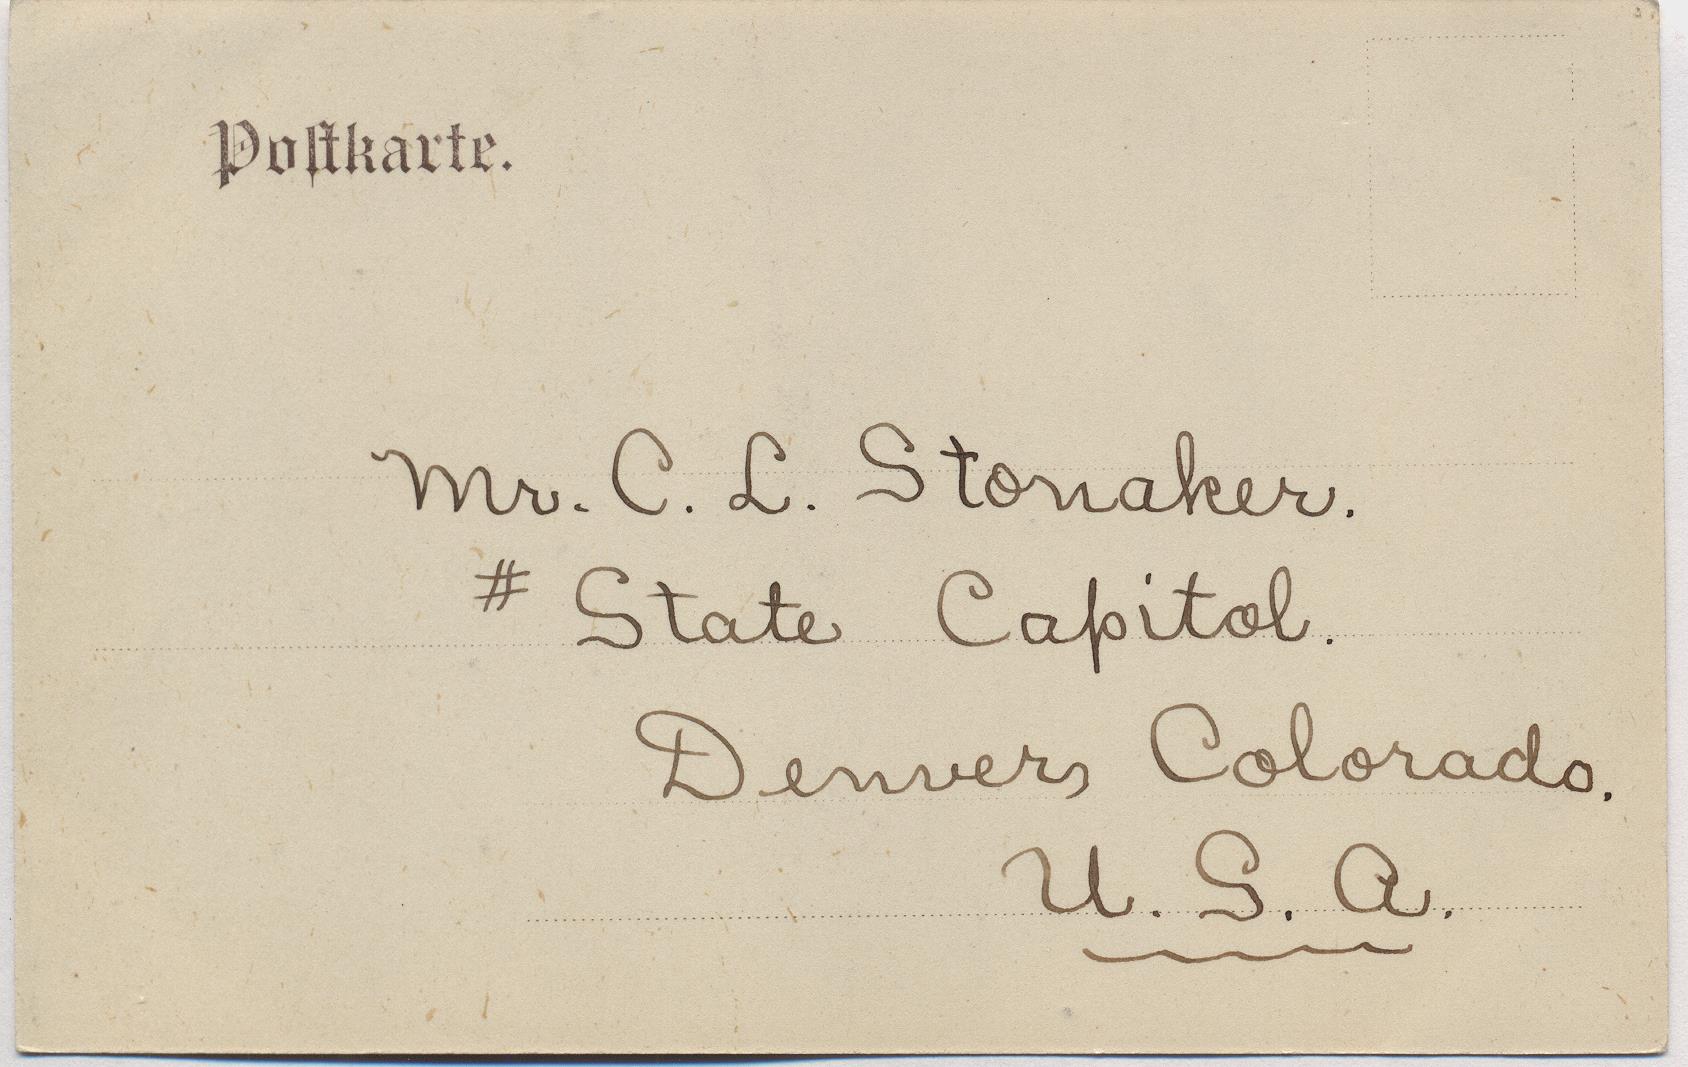 Postkarte.
Mr. C. L. Stonaker.
# State Capitol.
Denver, Colorado.
U. S. A.